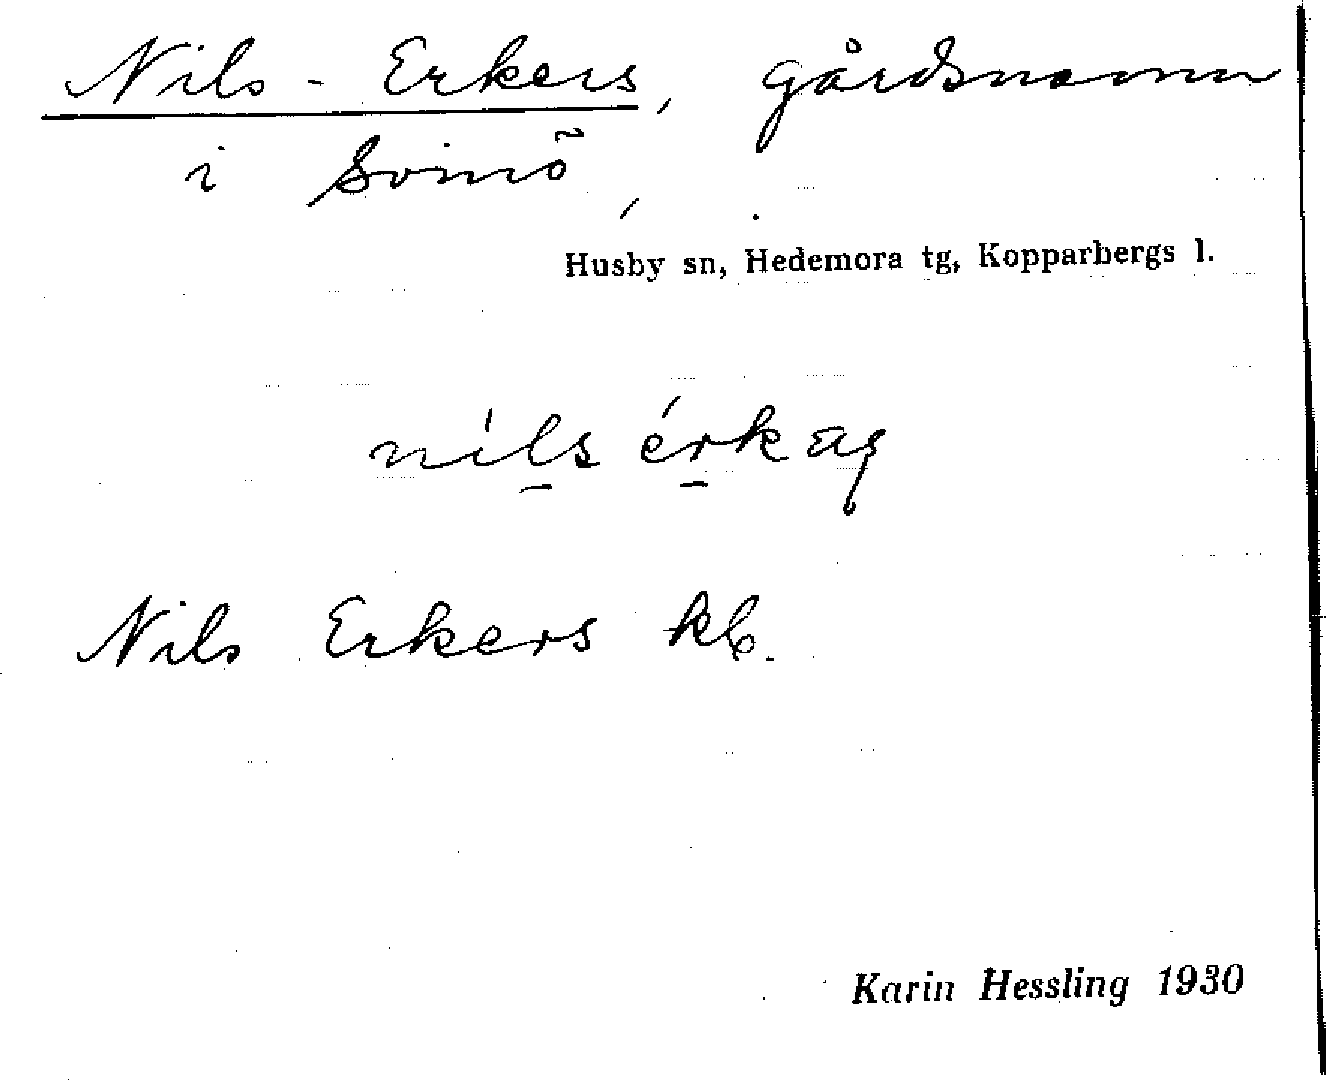 Nils-Erkers, gårdsnamn
i Svinö,
Husby sn, Hedemora tg, Kopparbergs l.
níls érkaş
Nils Erkers kb.
Karin Hessling 1930